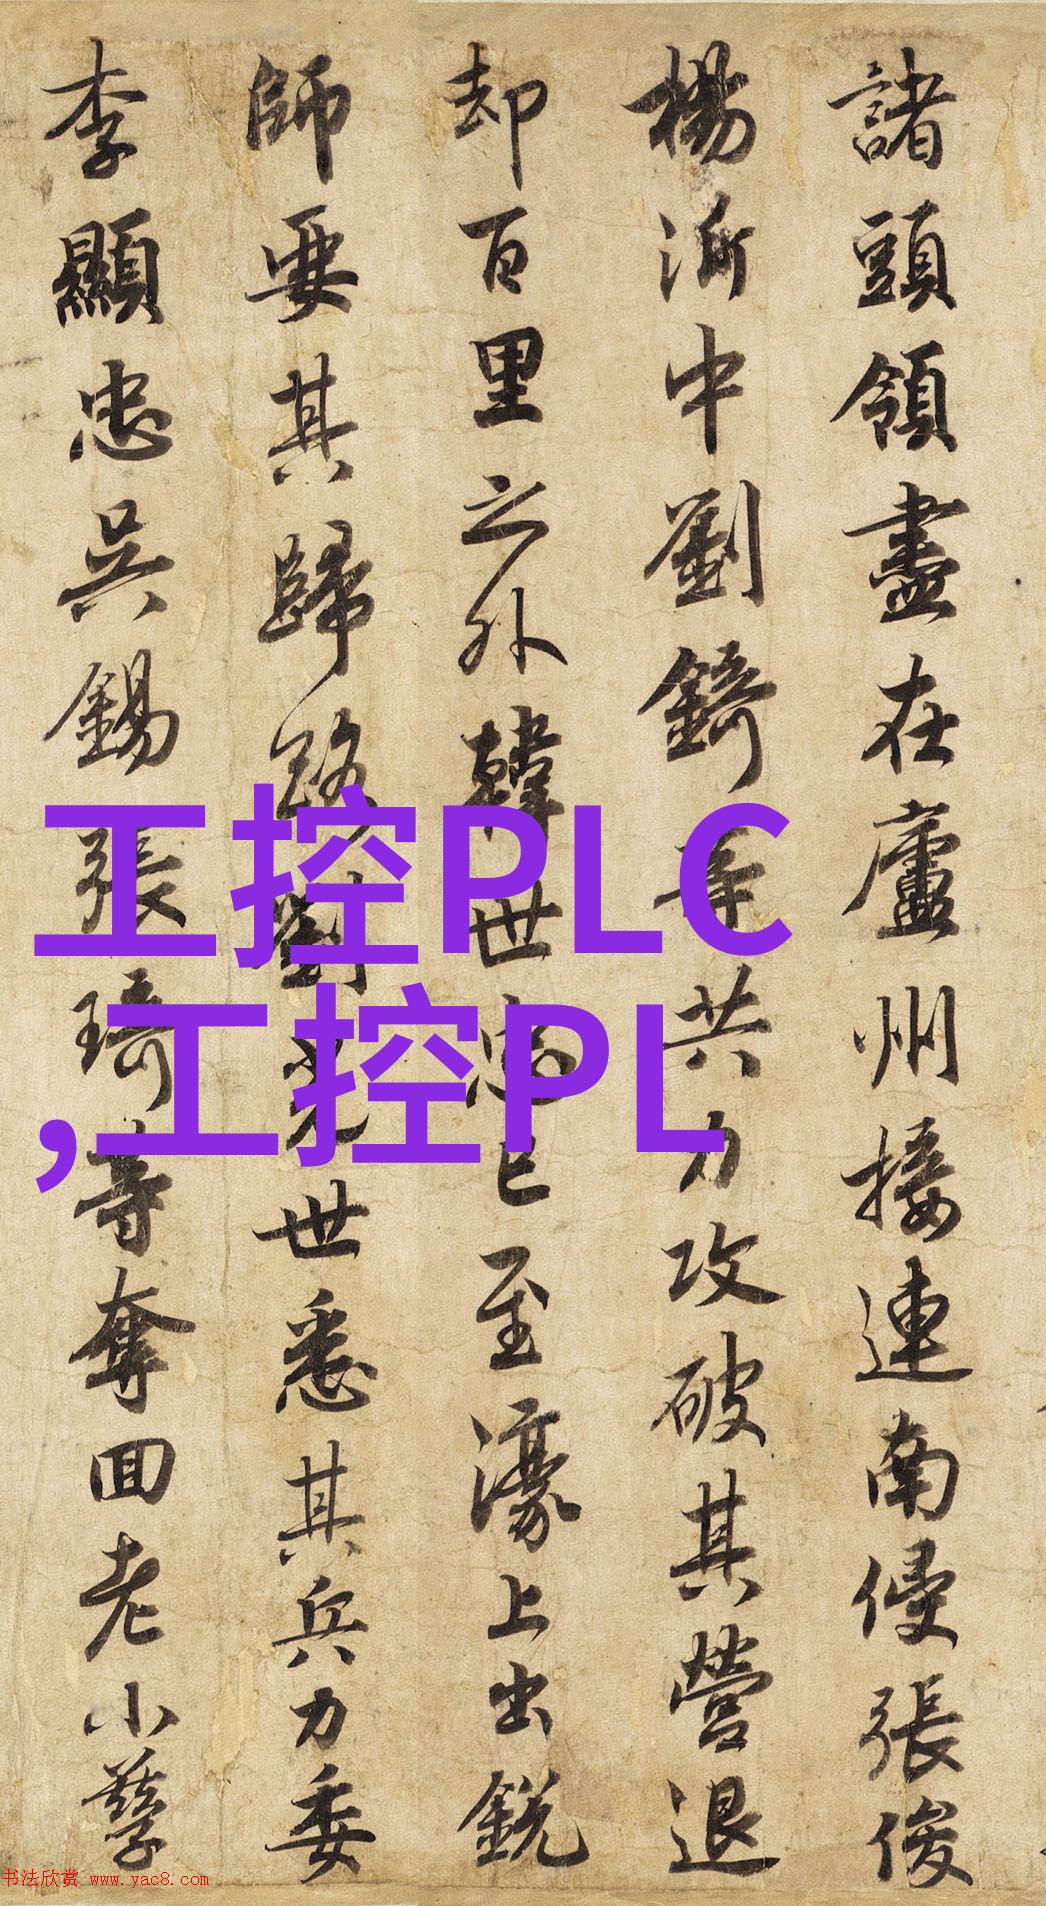 諸頭領盡在廬州接連南侵張俊
楊沂中劉錡等共力攻破其營退
却百里之外韓世忠已至濠上出銳
師要其歸路劉光世悉其兵力委
李顯忠吳錫張琦等奪回老小孳
工控PLC
,工控PL
书法欣赏 www.yac8.com